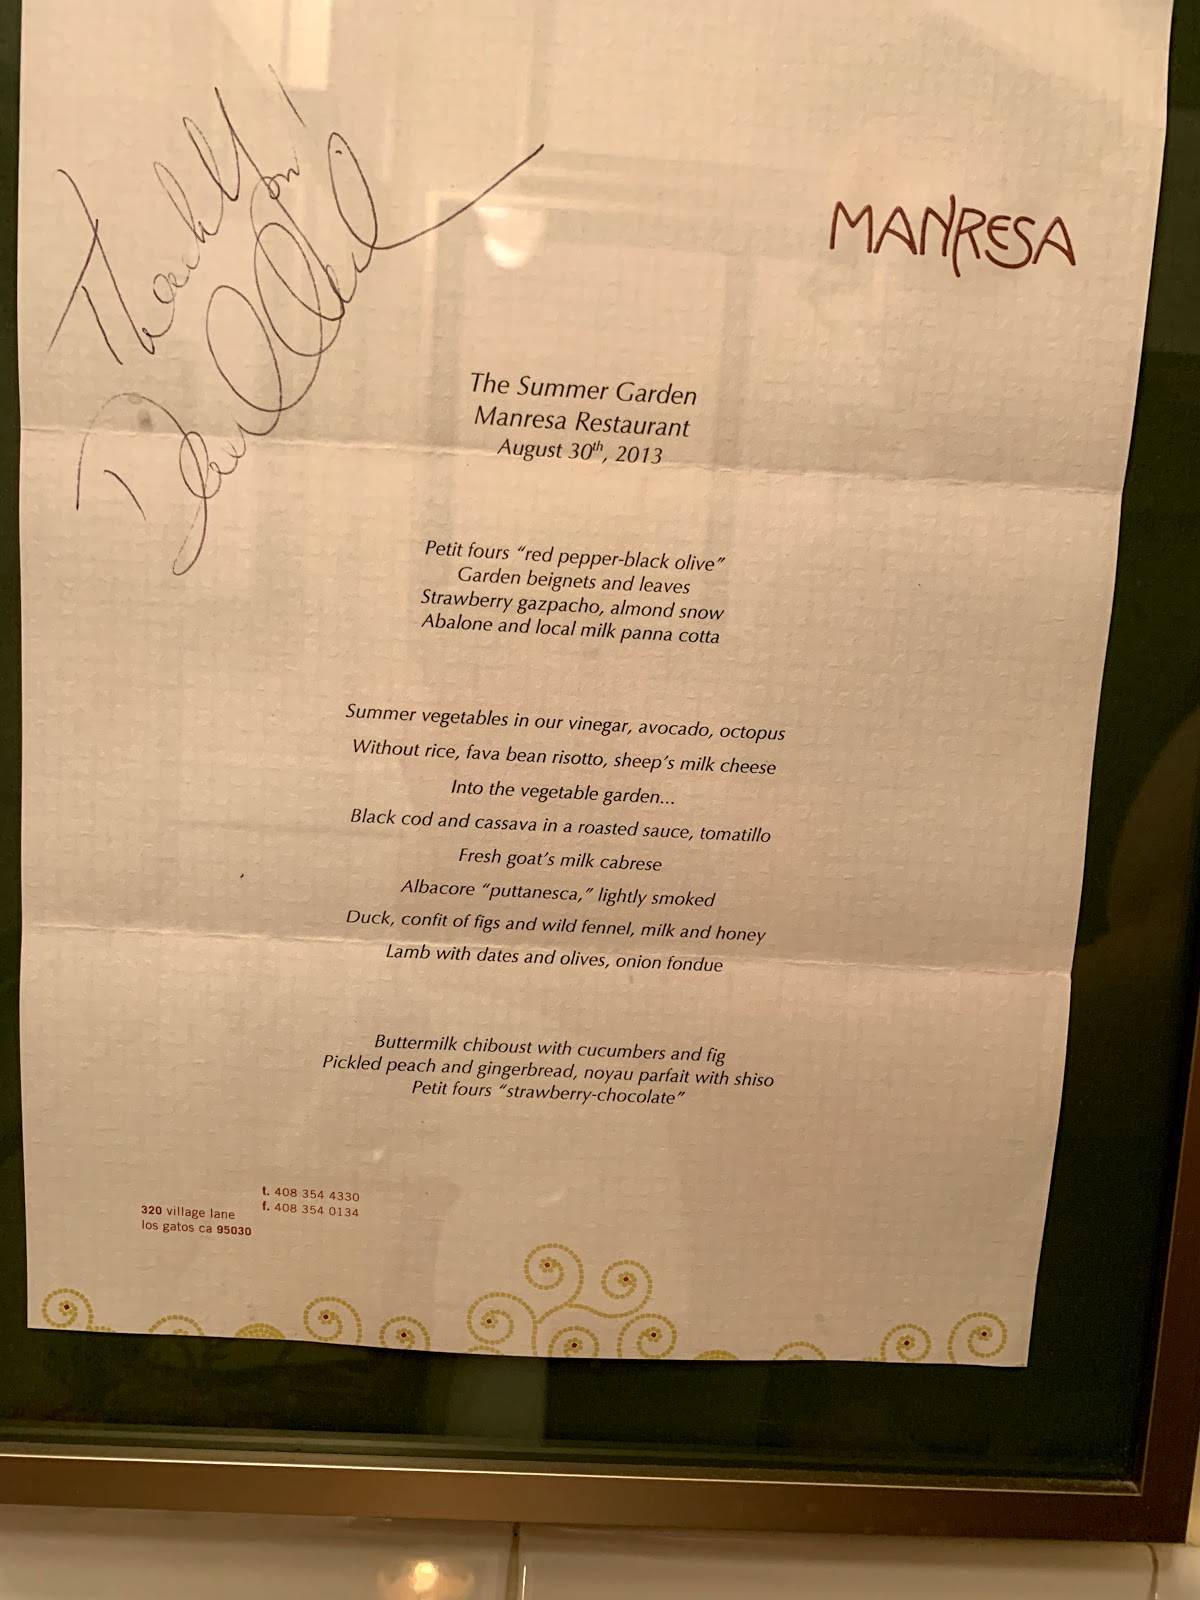 Thank You!
MANRESA
The Summer Garden
Manresa Restaurant
August 30th, 2013
Petit fours “red pepper-black olive”
Garden beignets and leaves
Strawberry gazpacho, almond snow
Abalone and local milk panna cotta
Summer vegetables in our vinegar, avocado, octopus
Without rice, fava bean risotto, sheep’s milk cheese
Into the vegetable garden...
Black cod and cassava in a roasted sauce, tomatillo
Fresh goat’s milk cabrese
Albacore “puttanesca,” lightly smoked
Duck, confit of figs and wild fennel, milk and honey
Lamb with dates and olives, onion fondue
Buttermilk chiboust with cucumbers and fig
Pickled peach and gingerbread, noyau parfait with shiso
Petit fours “strawberry-chocolate”
320 village lane
los gatos ca 95030
t. 408 354 4330
f. 408 354 0134